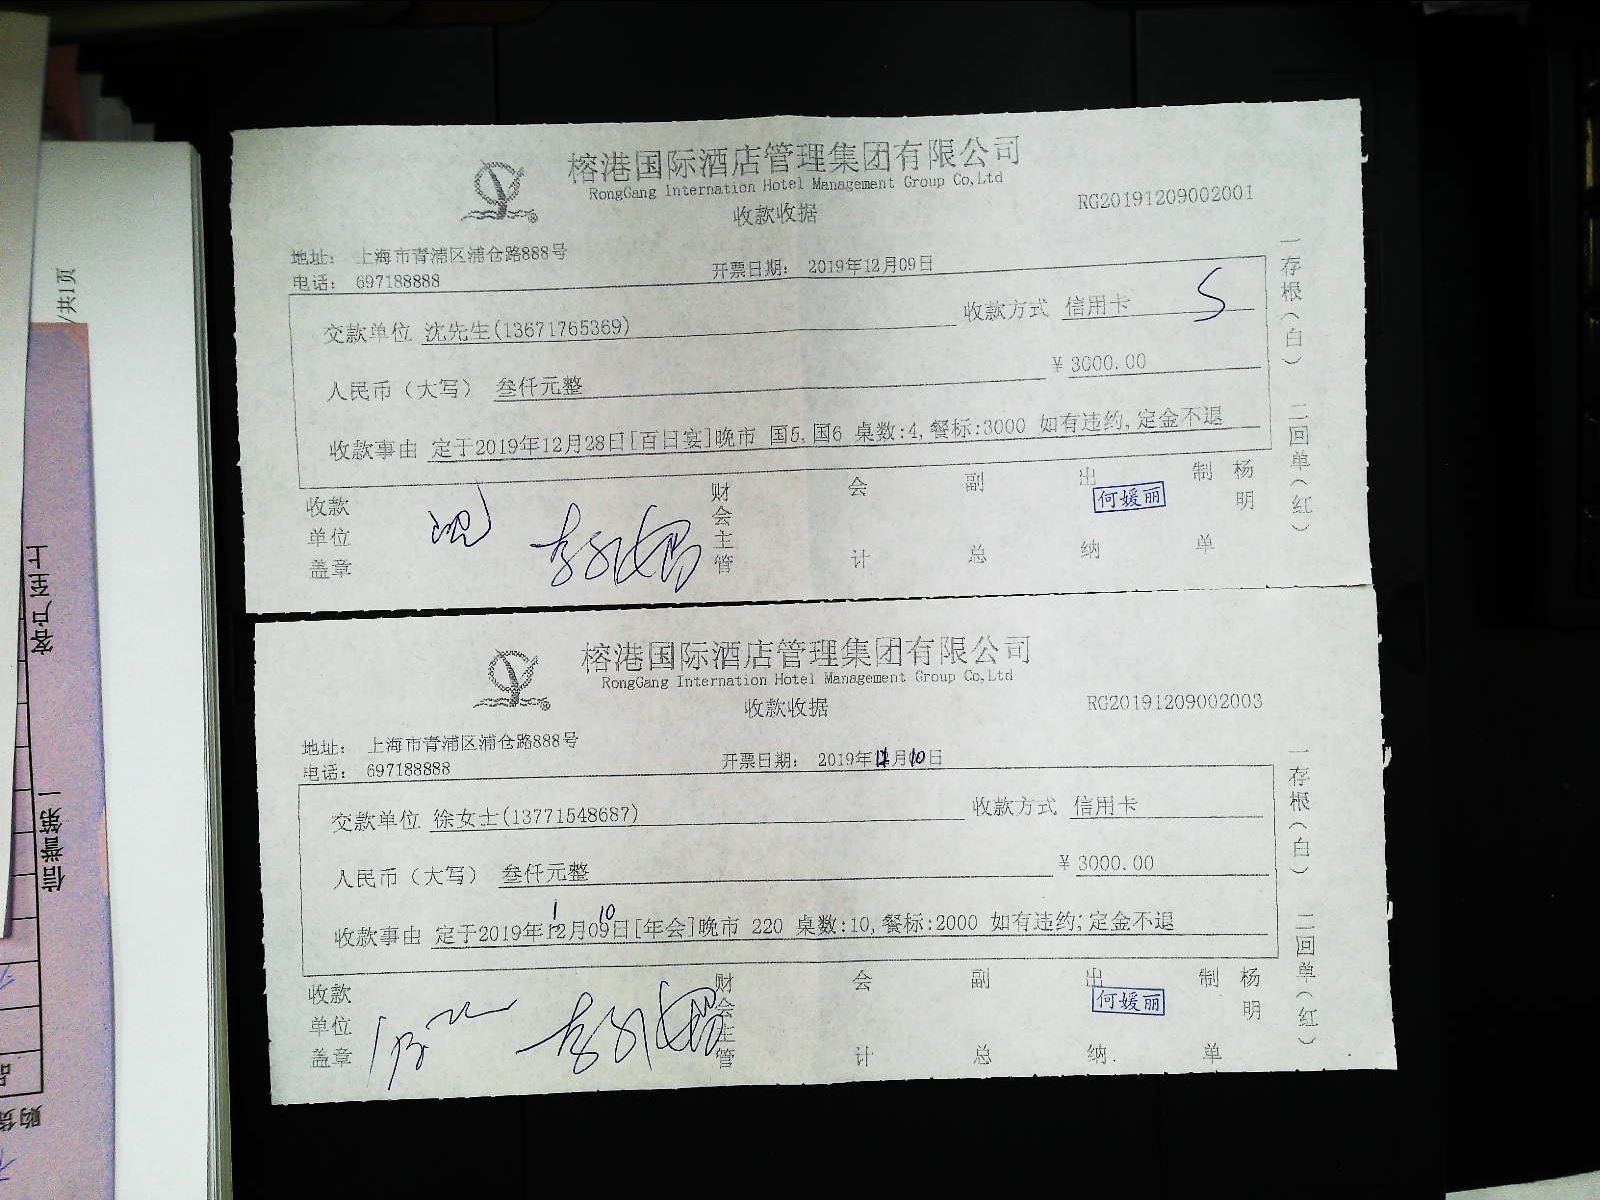 榕港国际酒店管理集团有限公司
RongGang Internation Hotel Management Group Co,Ltd
收款收据
RG20191209002001
地址： 上海市青浦区浦仓路888号
电话： 697188888
开票日期： 2019年12月09日
交款单位 沈先生(13671765369)
收款方式 信用卡
人民币（大写） 叁仟元整
¥3000.00
收款事由 定于2019年12月28日[百日宴]晚市 国5,国6 桌数:4,餐标:3000 如有违约,定金不退
收款单位盖章
财会主管
会计
副总
出纳
何媛丽
制单
杨明
一存根（白） 二回单（红）
榕港国际酒店管理集团有限公司
RongGang Internation Hotel Management Group Co,Ltd
收款收据
RG20191209002003
地址： 上海市青浦区浦仓路888号
电话： 697188888
开票日期： 2019年月10日
交款单位 徐女士(13771548687)
收款方式 信用卡
人民币（大写） 叁仟元整
¥3000.00
1 10
收款事由 定于2019年12月09日[年会]晚市 220 桌数:10,餐标:2000 如有违约;定金不退
收款单位盖章
财会主管
会计
副总
出纳
何媛丽
制单
杨明
一存根（白） 二回单（红）
/共1页
客户至上
信誉第一